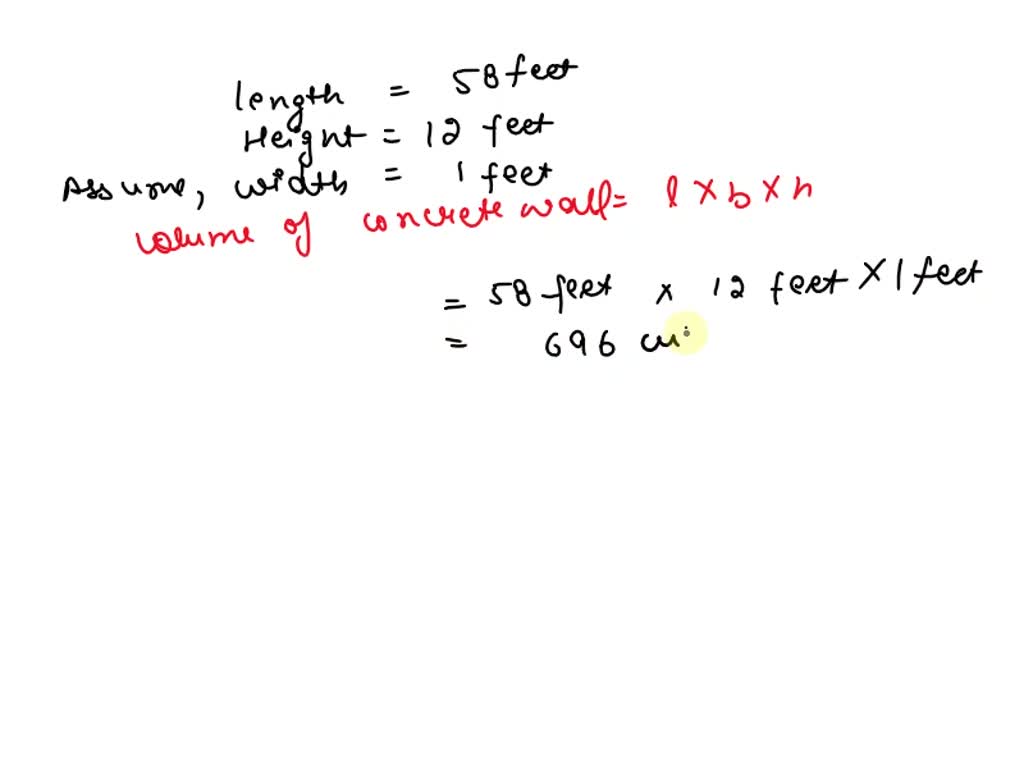 length = 58 feet
Height = 12 feet
Assume, width = 1 feet
volume of concrete wall = l × b × h
= 58 feet × 12 feet × 1 feet
= 696 cu